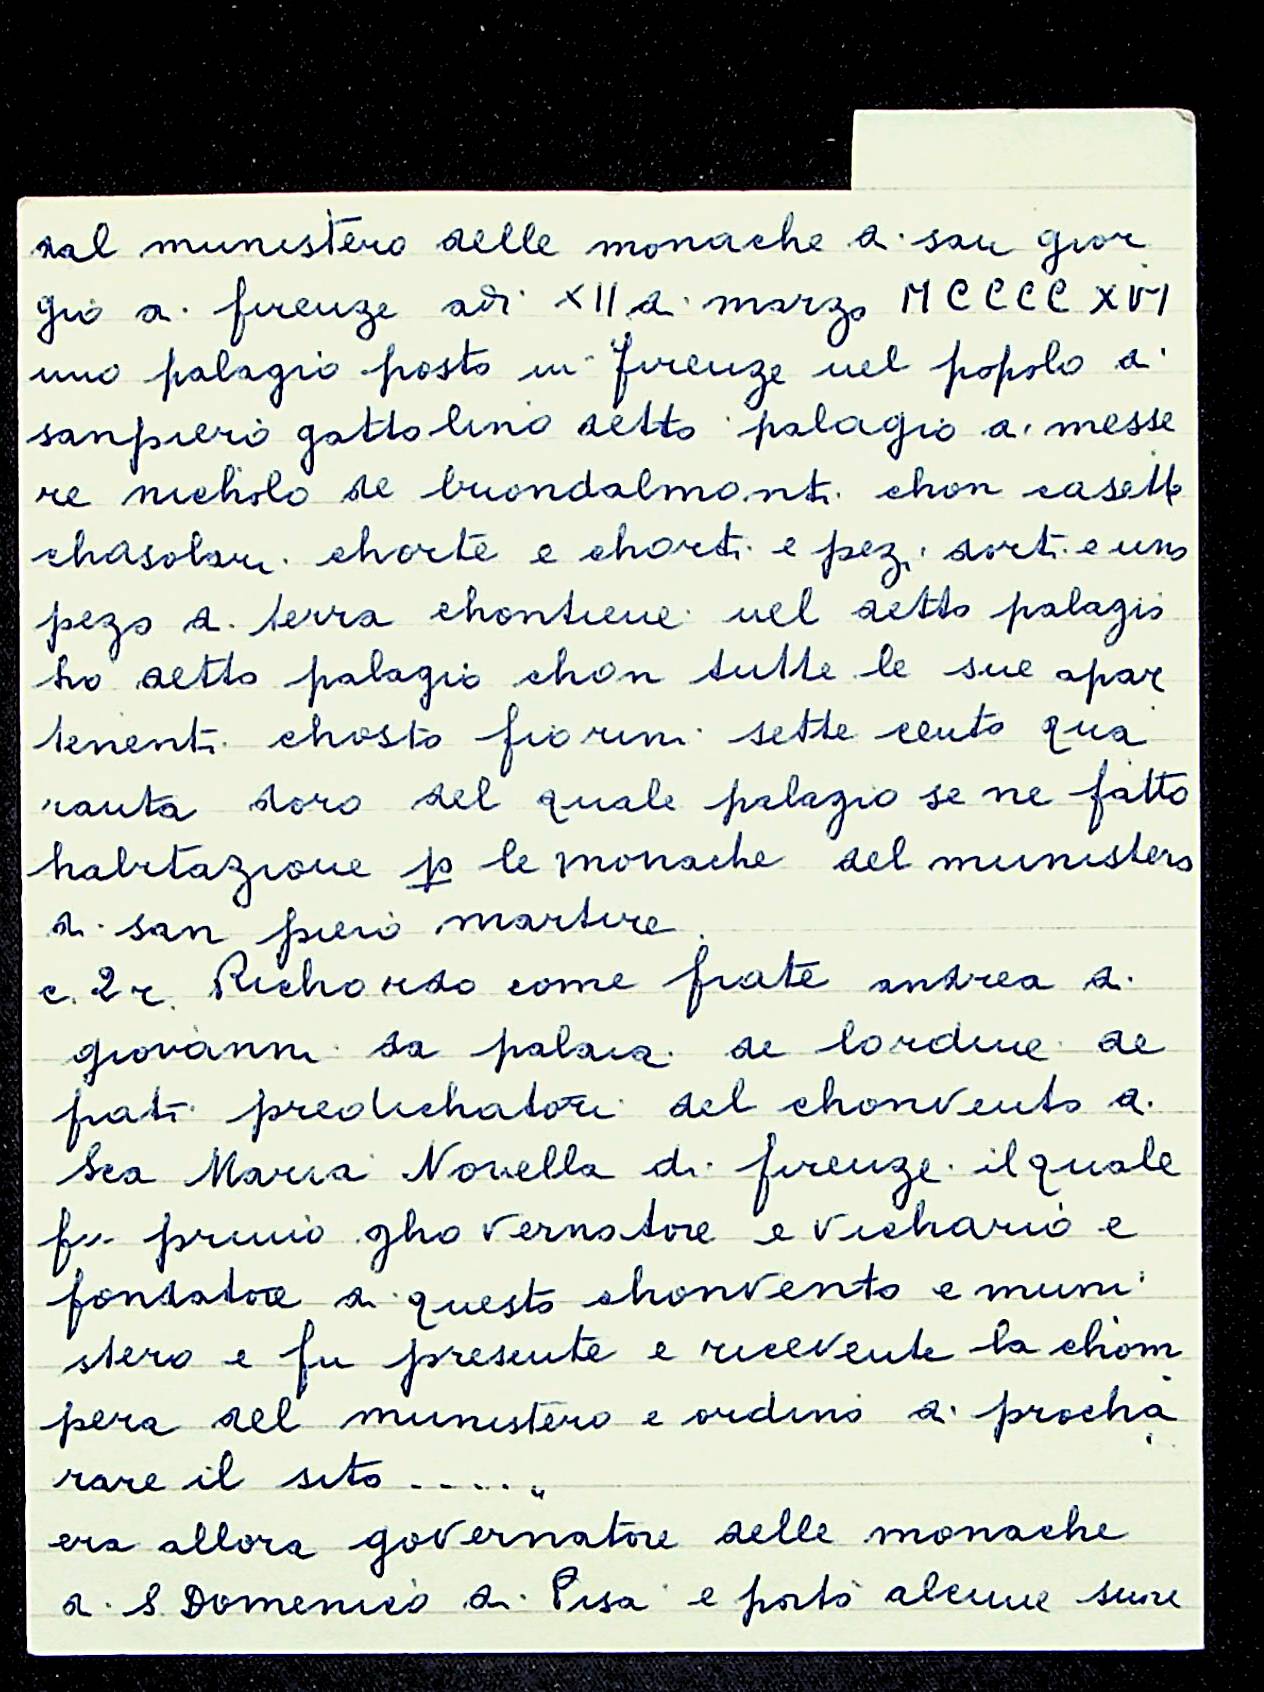 dal munistero delle monache di san gior
gio di firenze adi XII di marzo MCCCCXVI
uno palagio posto in firenze nel popolo di
sanpiero gattolino detto palagio di messe
re nicholo de buondalmonti chon casette
chasolari chorte e chorti e pezi dorti e uno
pezo di terra chontiene nel detto palagio
lo detto palagio chon tutte le sue apar
tenenti chosto fiorini sette cento qua
ranta doro del quale palagio se ne fatto
habitazione p le monache del munistero
di san piero martire.
c. 2 r. Richordo come frate andrea di
giovanni da palaia de lordine de
frati predichatori del chonvento di
Sca Maria Novella di firenze il quale
fu primo ghovernatore e vichario e
fondatore di questo chonvento e muni
stero e fu presente e ricevente la chom
pera del munistero e ordino di procha
rare il sito ....."
era allora governatore delle monache
di S Domenico di Pisa e portò alcune suore